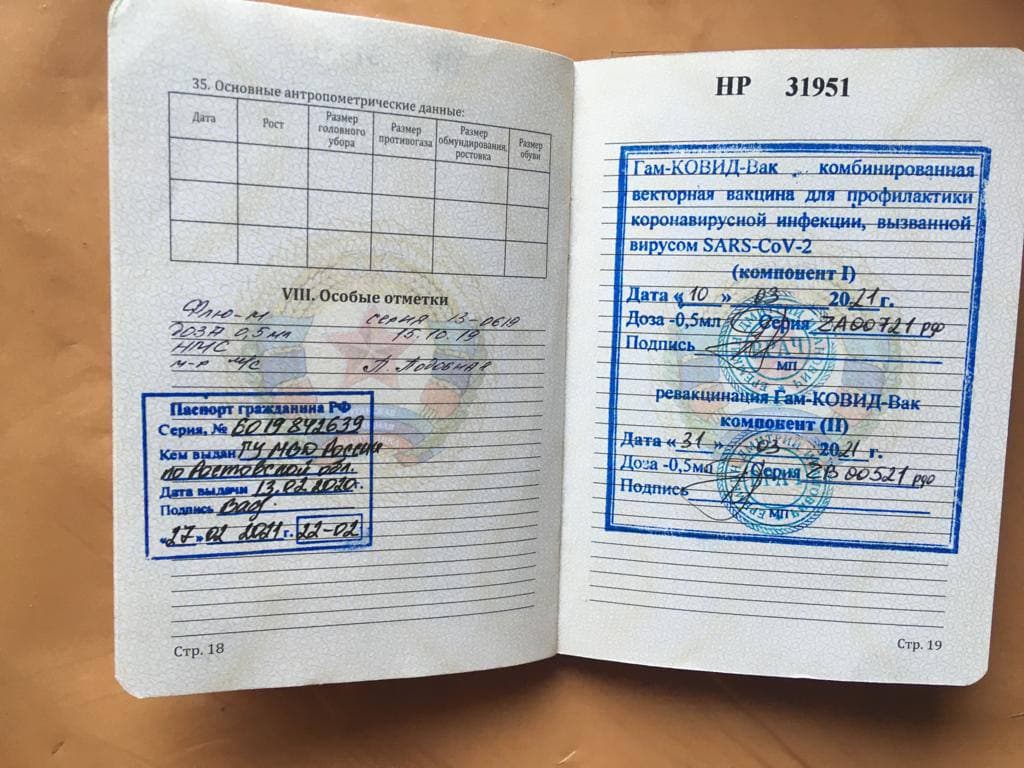 35. Основные антропометрические данные:
Дата Рост Размер головного убора Размер противогаза Размер обмундирования, ростовка Размер обуви
VIII. Особые отметки
Флю-М серия 13-0619
доза 0,5 мл 15.10.19
НМС
м-р м/с П. Подобная
Паспорт гражданина РФ
Серия, № 6019842639
Кем выдан ГУ МВД России
по Ростовской обл.
Дата выдачи 13.02.2020г.
Подпись
«27» 02 2021 г. 22-02
Стр. 18
НР 31951
Гам-КОВИД-Вак комбинированная
векторная вакцина для профилактики
коронавирусной инфекции, вызванной
вирусом SARS-CoV-2
(компонент I)
Дата «10» 03 2021 г.
Доза -0,5мл Серия ZA00721 рф
Подпись
ВРАЧ
МП
ревакцинация Гам-КОВИД-Вак
компонент (II)
Дата «31» 03 2021 г.
Доза -0,5мл Серия ZB00521 рф
Подпись
МП
Стр. 19